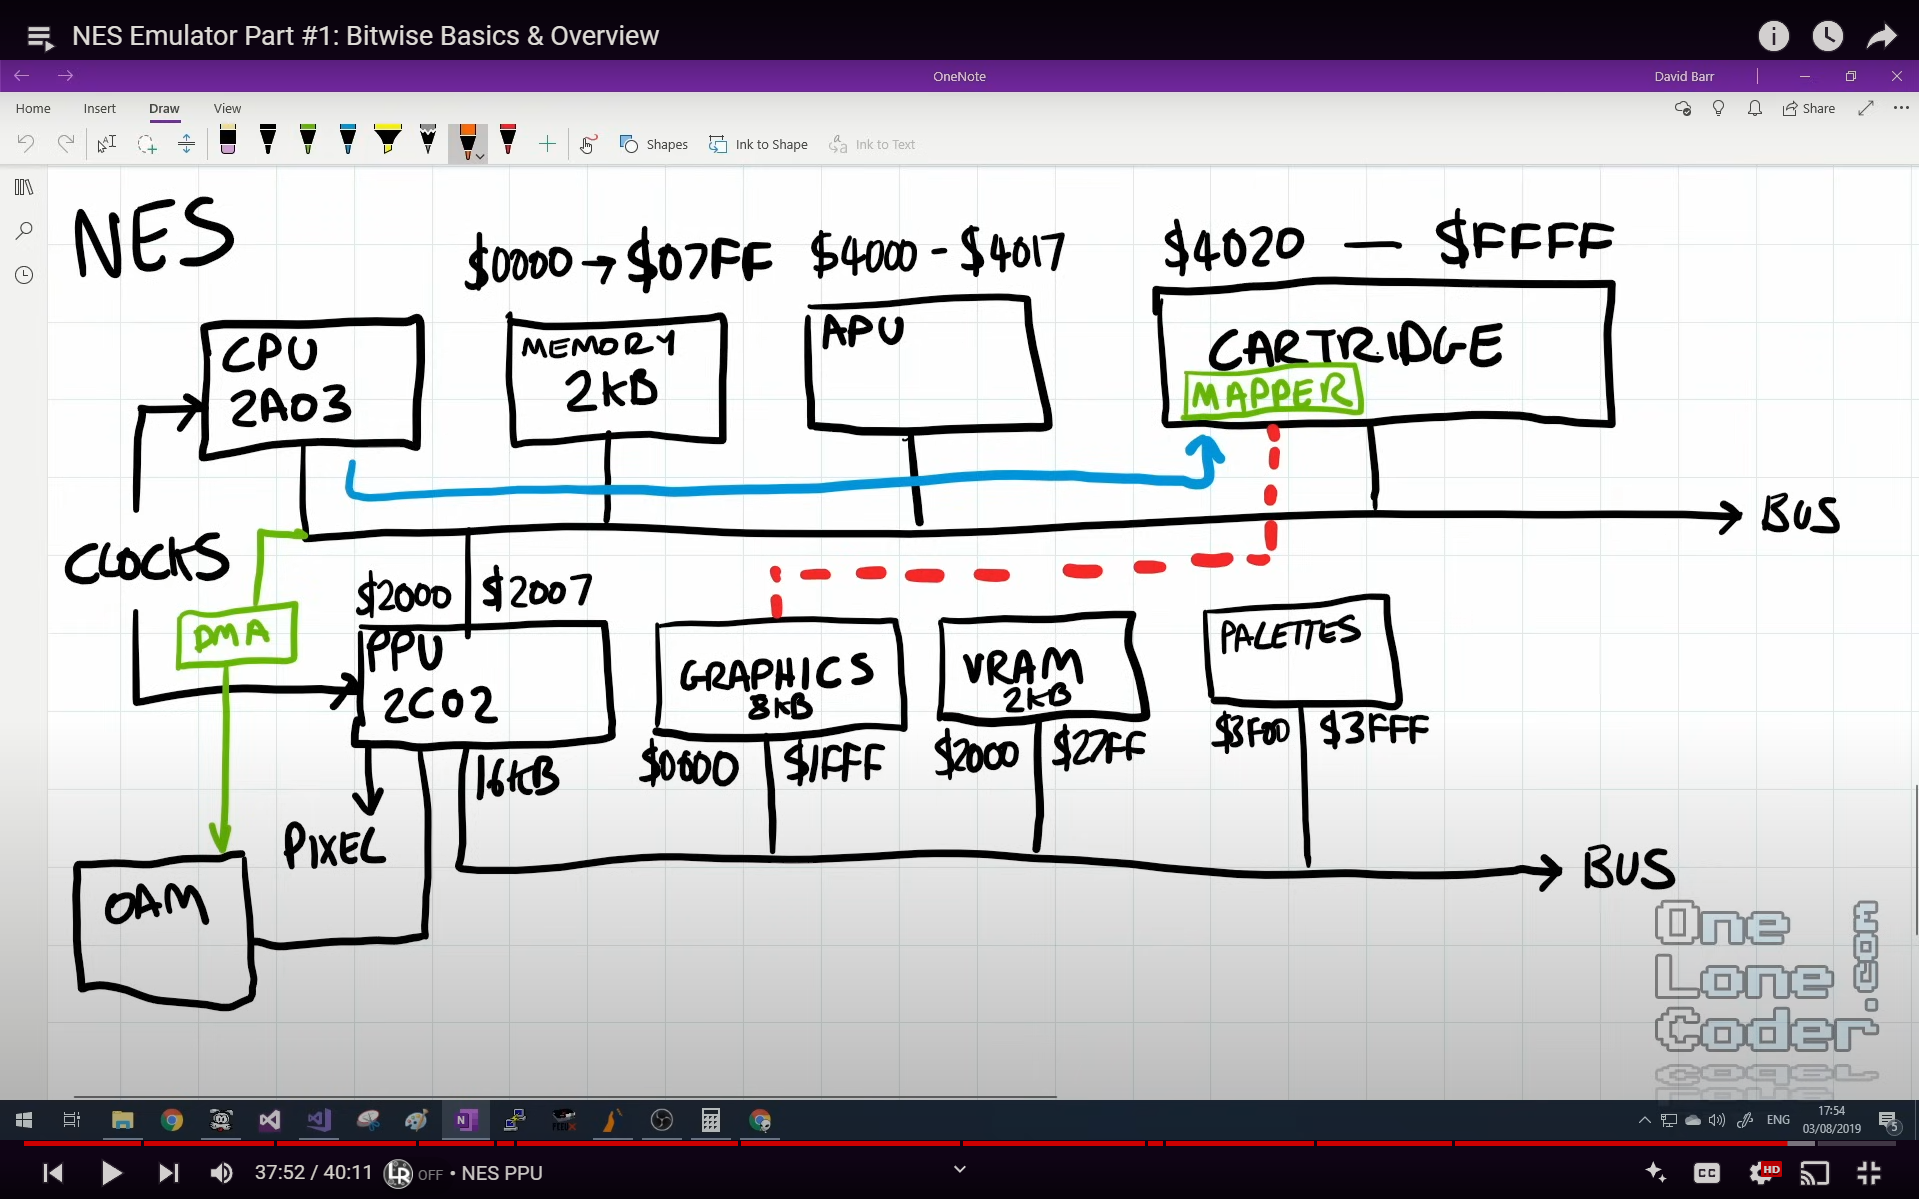 NES Emulator Part #1: Bitwise Basics & Overview
OneNote
David Barr
Home Insert Draw View
Share
Shapes
Ink to Shape
Ink to Text
NES
$0000 → $07FF
$4000 - $4017
$4020 — $FFFF
CPU
2A03
MEMORY
2KB
APU
CARTRIDGE
MAPPER
BUS
CLOCKS
$2000 $2007
DMA
PPU
2C02
GRAPHICS
8KB
VRAM
2KB
PALETTES
16KB
$0000 $1FFF
$2000 $27FF
$3F00 $3FFF
PIXEL
OAM
BUS
One
Lone
Coder
.com
ENG
17:54
03/08/2019
5
37:52 / 40:11
LR OFF • NES PPU
CC
HD